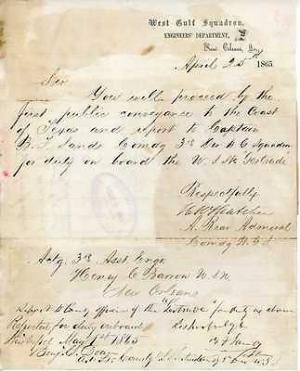 West Gulf Squadron,
ENGINEERS' DEPARTMENT,
New Orleans, La.,
April 25th 1865
Sir
You will proceed by the
first public conveyance to the Coast
of Texas and report to Captain
B. F. Sands Comdg 3rd Div W. G. Squadron
for duty on board the U. S. Str Gertrude
Respectfully
A. Rear Admiral
Comdg W. G. S
Actg. 3rd Asst Engr
Henry C Barron U.S.N
New Orleans
Report to Comg Officer of the "Gertrude" for duty as above
Reported for duty onboard
May 1st 1865